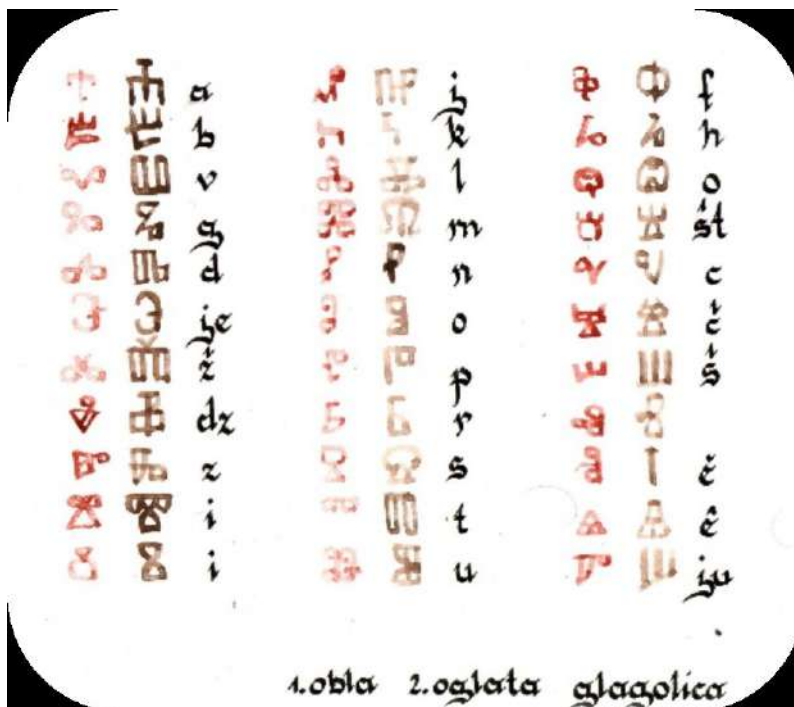 Ⰰ Ⰰ a
Ⰱ Ⰱ b
Ⰲ Ⰲ v
Ⰳ Ⰳ g
Ⰴ Ⰴ d
Ⰵ Ⰵ je
Ⰶ Ⰶ ž
Ⰷ Ⰷ dz
Ⰸ Ⰸ z
Ⰹ Ⰹ i
Ⰻ Ⰻ i
Ⰼ Ⰼ j
Ⰽ Ⰽ k
Ⰾ Ⰾ l
Ⰿ Ⰿ m
Ⱀ Ⱀ n
Ⱁ Ⱁ o
Ⱂ Ⱂ p
Ⱃ Ⱃ r
Ⱄ Ⱄ s
Ⱅ Ⱅ t
Ⱆ Ⱆ u
Ⱇ Ⱇ f
Ⱈ Ⱈ h
Ⱉ Ⱉ o
Ⱋ Ⱋ št
Ⱌ Ⱌ c
Ⱍ Ⱍ č
Ⱎ Ⱎ š
Ⱏ Ⱏ
ě
Ⱑ Ⱑ ê
Ⱓ Ⱓ ju
1.obla 2.oglata glagolica